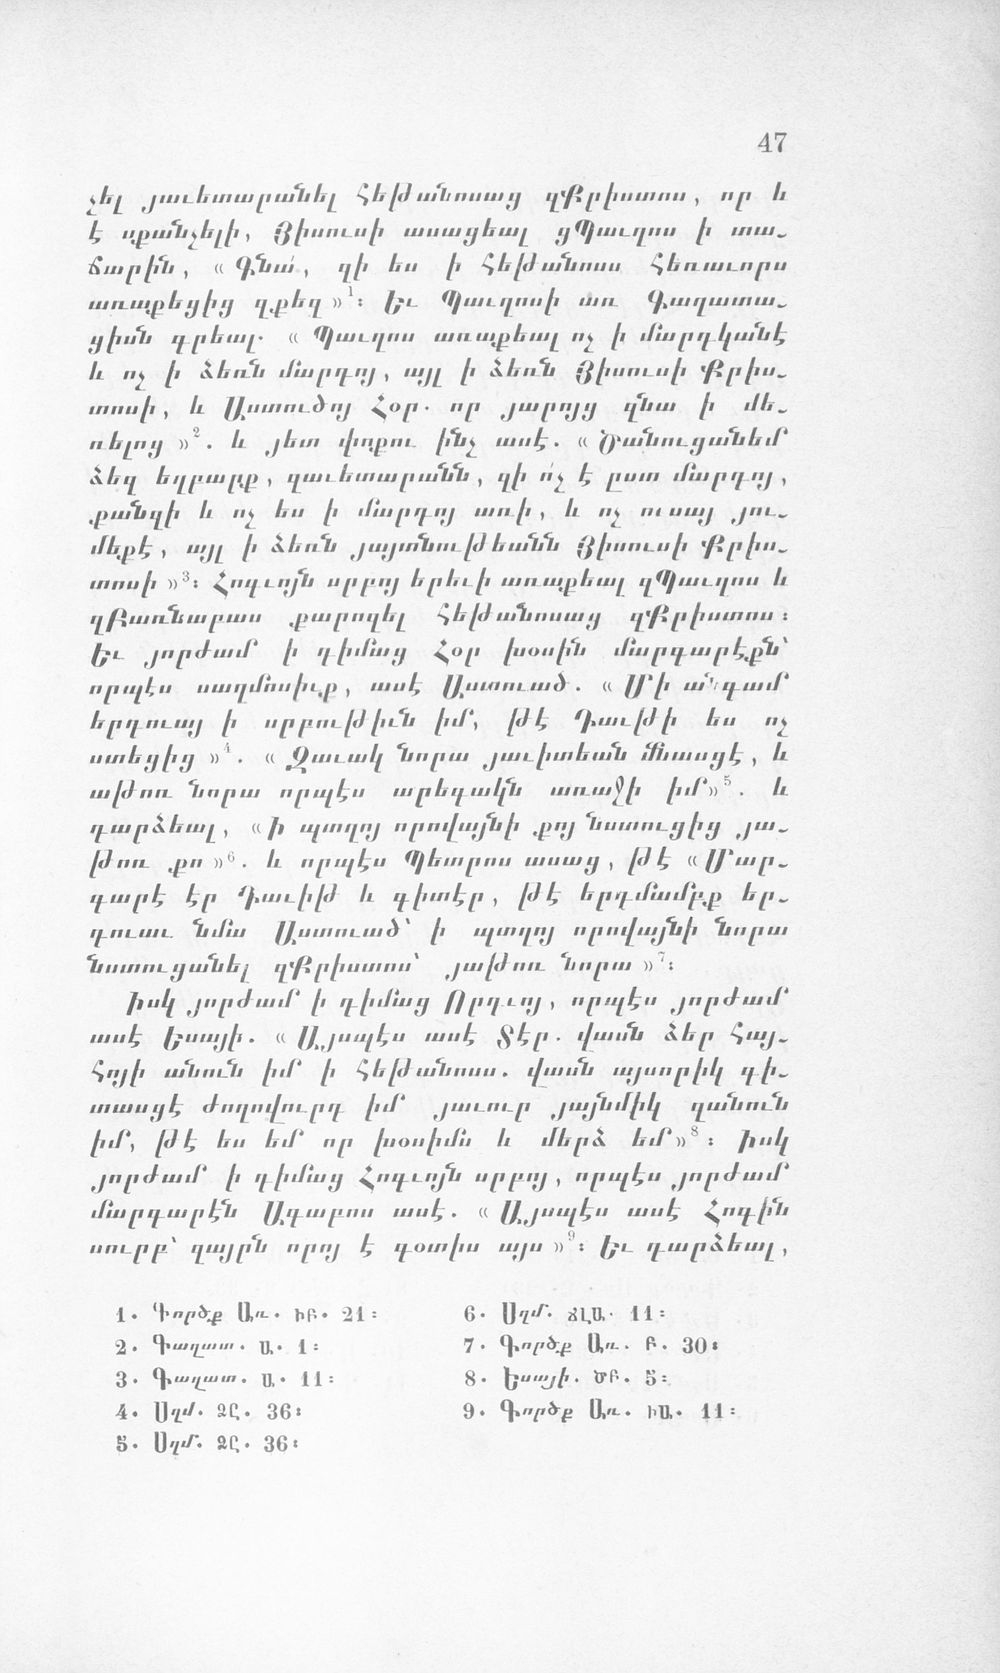 47
չել յաւետարանել հեթանոսաց զՔրիստոս, որ և
է սքանչելի, Յիսուսի ասացեալ ցՊաւղոս ի տա֊
ճարին, « Գնա՛, զի ես ի հեթանոսս հեռաւորս
առաքեցից զքեզ »¹։ Եւ Պաւղոսի առ Գաղատա֊
ցիսն գրեալ. « Պաւղոս առաքեալ ոչ ի մարդկանէ
և ոչ ի ձեռն մարդոյ, այլ ի ձեռն Յիսուսի Քրիս֊
տոսի, և Աստուծոյ Հօր. որ յարոյց զնա ի մե֊
ռելոց »². և յետ փոքու ինչ ասէ. « Ծանուցանեմ
ձեզ եղբարք, զաւետարանն, զի ո՛չ է ըստ մարդոյ,
քանզի և ոչ ես ի մարդոյ առի, և ոչ ուսայ յու֊
մեքէ, այլ ի ձեռն յայտնութեանն Յիսուսի Քրիս֊
տոսի »³։ Հոգւոյն սրբոյ երեւի առաքեալ զՊաւղոս և
զԲառնաբաս քարոզել հեթանոսաց զՔրիստոս։
Եւ յորժամ ի դիմաց Հօր խօսին մարգարէքն՝
որպէս սաղմոսիւք, ասէ Աստուած. « Մի անգամ
երդուայ ի սրբութիւն իմ, թէ Դաւթի ես ոչ
ստեցից »⁴. « Զաւակ նորա յաւիտեան մնասցէ, և
աթոռ նորա որպէս արեգակն առաջի իմ»⁵. և
դարձեալ, « Ի պտղոյ որովայնի քոյ նստուցից յա֊
թոռ քո »⁶. և որպէս Պետրոս ասաց, թէ « Մար֊
գարէ էր Դաւիթ և գիտէր, թէ երդմամբք եր֊
դուաւ նմա Աստուած՝ ի պտղոյ որովայնի նորա
նստուցանել զՔրիստոս՝ յաթոռ նորա »⁷։
Իսկ յորժամ ի դիմաց Որդւոյ, որպէս յորժամ
ասէ Եսայի. « Այսպէս ասէ Տէր. վասն ձեր հայ֊
հոյի անուն իմ ի հեթանոսս. վասն այսորիկ գի֊
տասցէ ժողովուրդ իմ յաւուր յայնմիկ զանուն
իմ, թէ ես եմ որ խօսիմս և մերձ եմ»⁸։ Իսկ
յորժամ ի դիմաց Հոգւոյն սրբոյ, որպէս յորժամ
մարգարէն Ագաբոս ասէ. « Այսպէս ասէ Հոգին
սուրբ՝ զայրն որոյ է գօտիս այս »⁹։ Եւ դարձեալ,
1. Գործք Առ. ԻԲ. 21։
2. Գաղատ. Ա. 1։
3. Գաղատ. Ա. 11։
4. Սղմ. ՁԸ. 36։
5. Սղմ. ՁԸ. 36։
6. Սղմ. ՃԼԱ. 11։
7. Գործք Առ. Բ. 30։
8. Եսայի. ԾԲ. 5։
9. Գործք Առ. ԻԱ. 11։